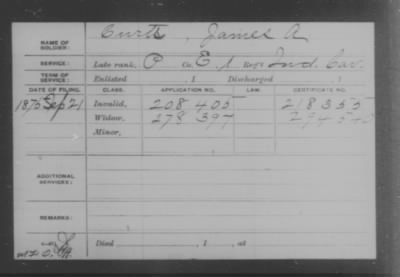 NAME OF SOLDIER: Curts, James A
SERVICE: Late rank, P Co. E, 1 Reg't Ind. Cav.
TERM OF SERVICE: Enlisted , 1 Discharged , 1
DATE OF FILING. CLASS. APPLICATION NO. LAW. CERTIFICATE NO.
1875 Sep 21 Invalid, 208 405 218 355
Widow, 278 397 294 540
Minor,
ADDITIONAL SERVICES:
REMARKS:
Died , 1 , at